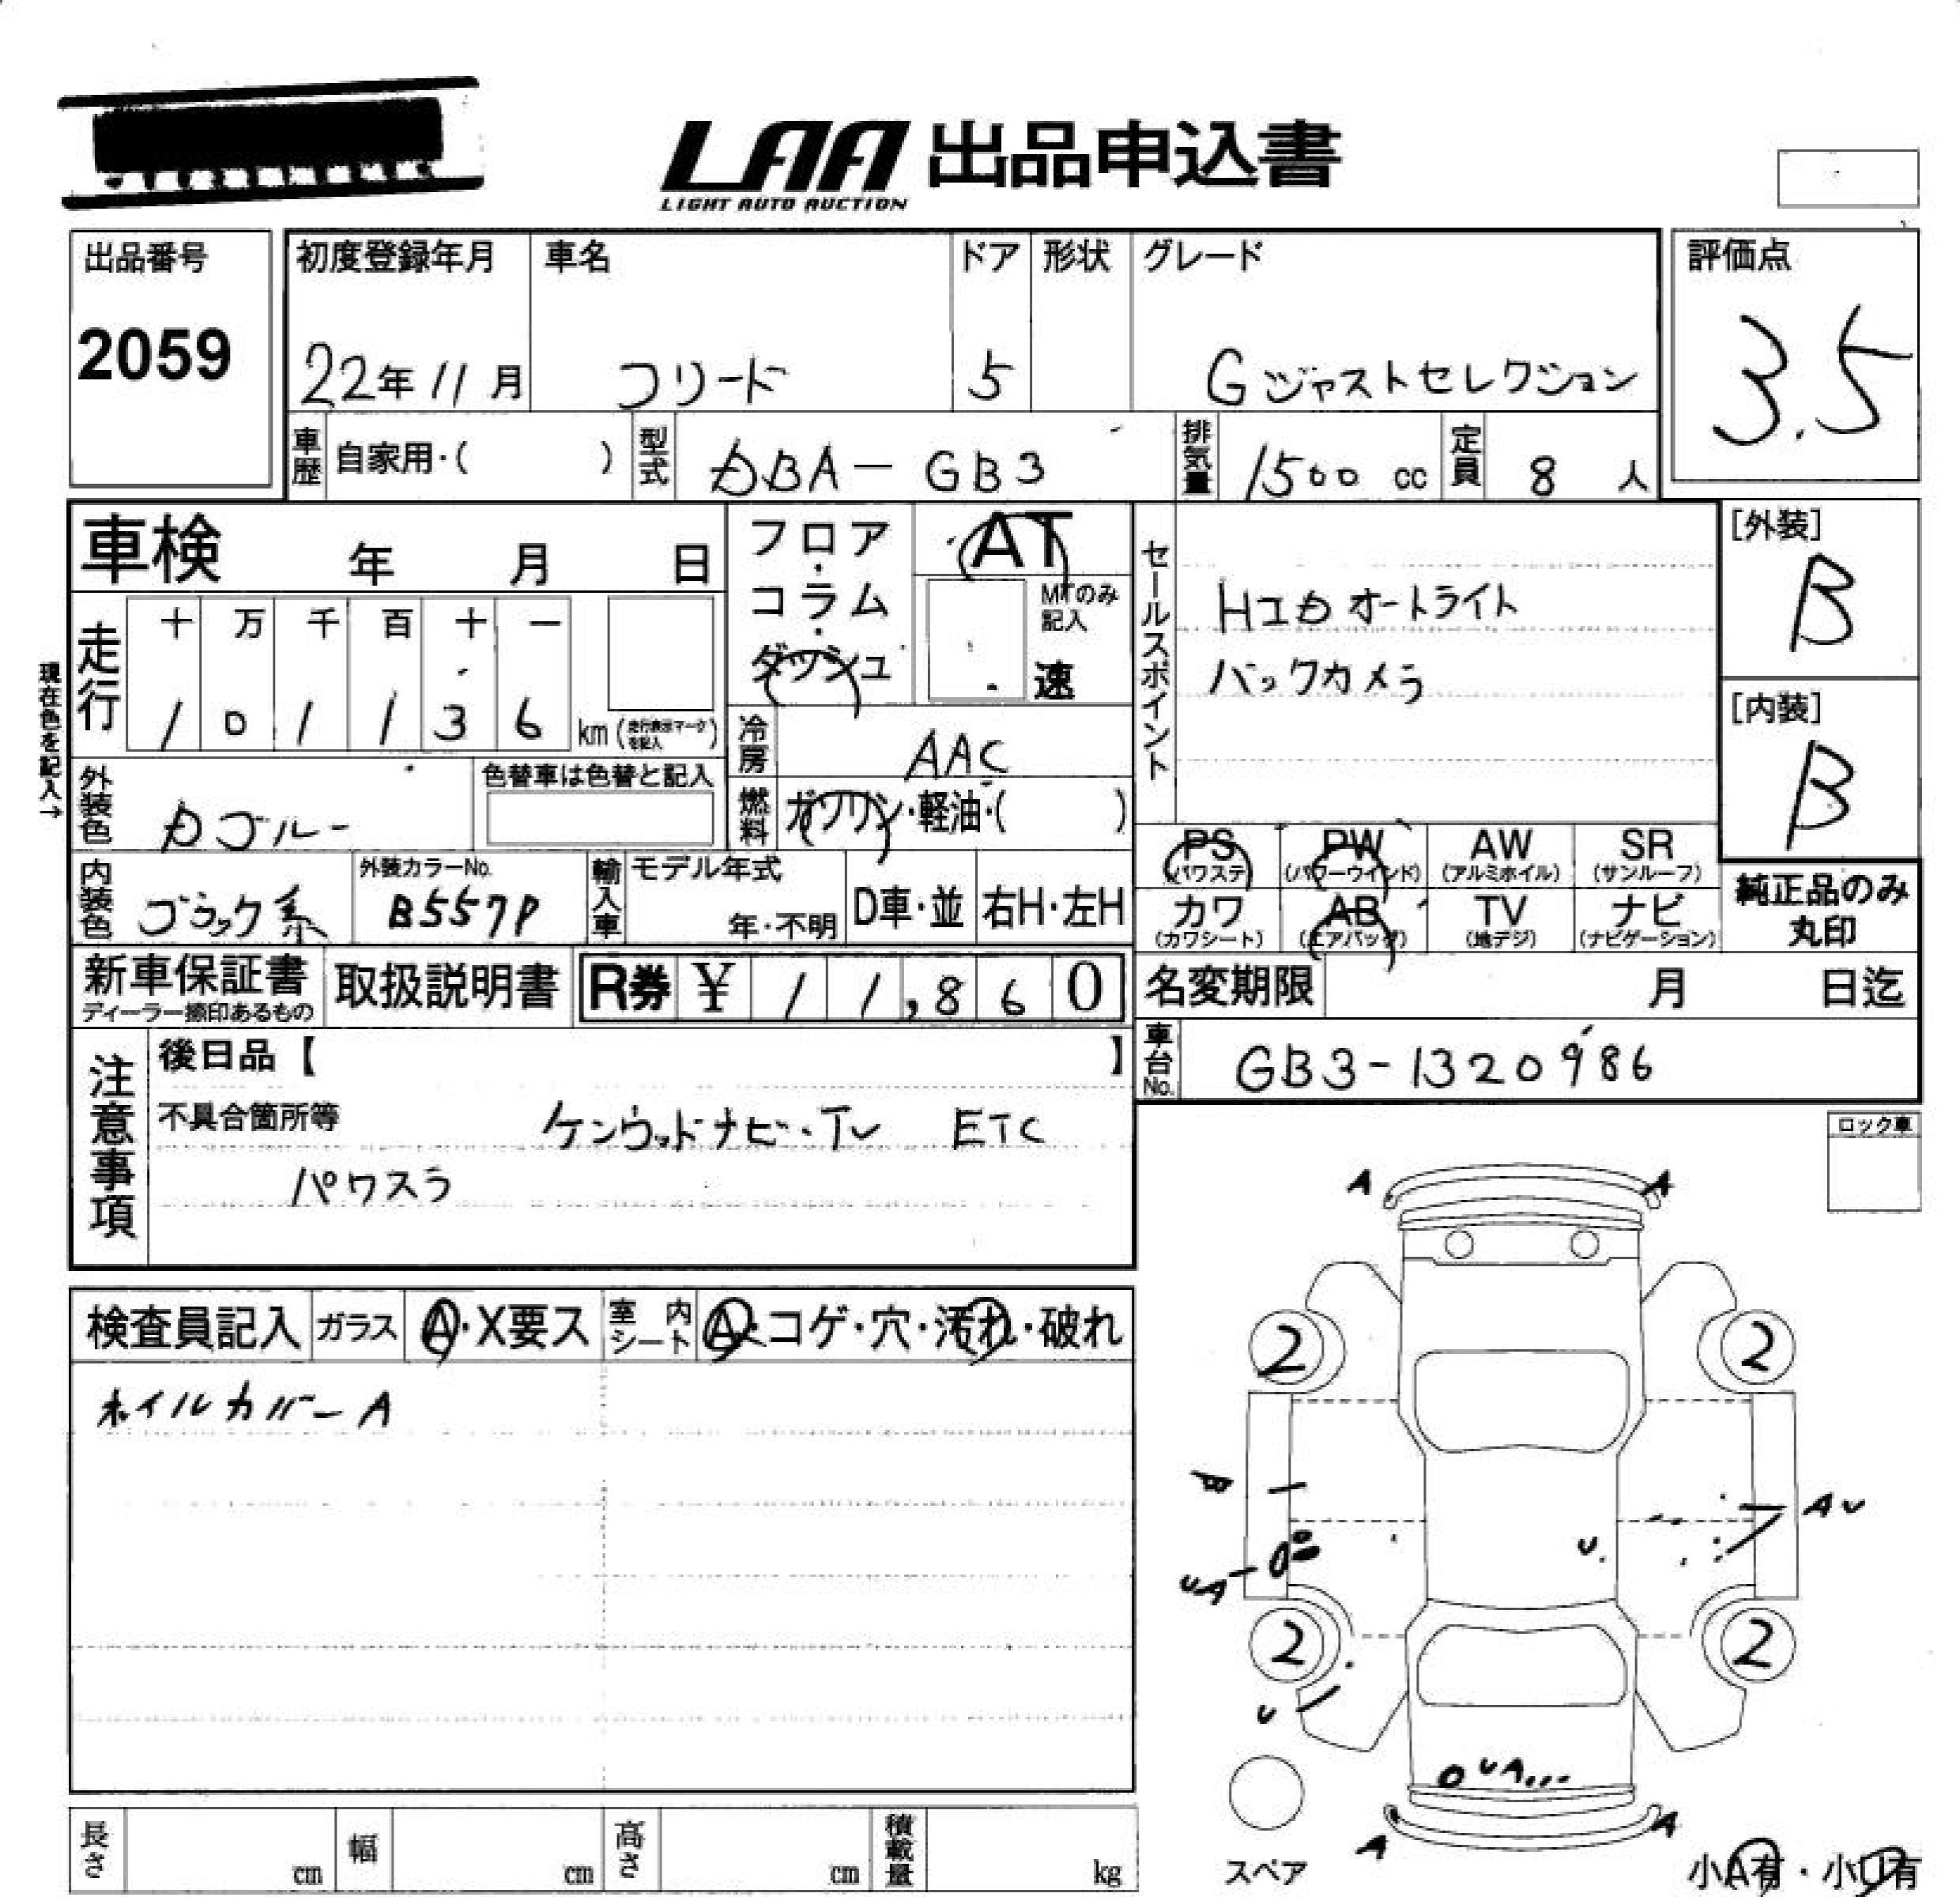 LAA 出品申込書
LIGHT AUTO AUCTION
出品番号 初度登録年月 車名 ドア 形状 グレード 評価点
2059 22年 11月 フリード 5 Gジャストセレクション 3.5
車歴 自家用・( ) 型式 DBA-GB3 排気量 1500 cc 定員 8 人
車検 年 月 日 フロア・コラム・ダッシュ AT
MTのみ記入 速
セールスポイント
HID オートライト
バックカメラ
[外装] B
[内装] B
現在色を記入→
走行 十 万 千 百 十 一
1 0 1 1 3 6 km (走行表示マークを記入)
冷房 AAC
外装色 Dブルー 色替車は色替と記入
燃料 ガソリン・軽油・( )
内装色 ブラック系 外装カラーNo. B557P 輸入車 モデル年式 年・不明 D車・並 右H・左H
PS (パワステ) PW (パワーウインド) AW (アルミホイル) SR (サンルーフ)
カワ (カワシート) AB (エアバッグ) TV (地デジ) ナビ (ナビゲーション)
純正品のみ丸印
新車保証書 ディーラー捺印あるもの 取扱説明書 R券 ¥ 11,860
名変期限 月 日迄
車台No. GB3-1320986
注意事項
後日品【 】
不具合箇所等 ケンウッドナビ・TV ETC
パワスラ
ロック車
検査員記入 ガラス A・X要ス 室内シート A・コゲ・穴・汚れ・破れ
ホイルカバーA
A A
2 2
AU
UA U
2 2
U
UA
A A
スペア
小A有・小U有
長さ cm 幅 cm 高さ cm 積載量 kg